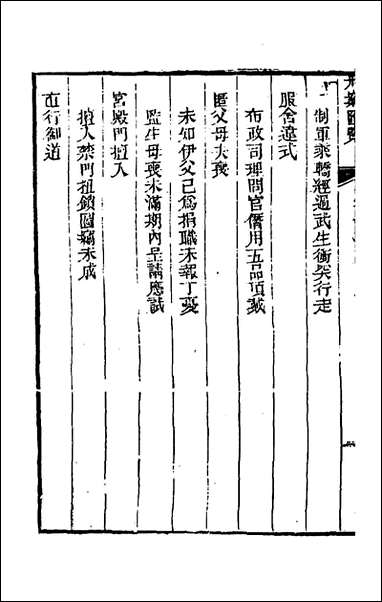 刑案匯覽
制軍乘轎經過武生衝突行走
服舍違式
布政司理問官僭用五品項戴
匿父母夫喪
未知伊父已為捐職未報丁憂
監生母喪未滿期內呈請應試
宮殿門擅入
擅入禁門扭鎖圖竊未成
直行御道